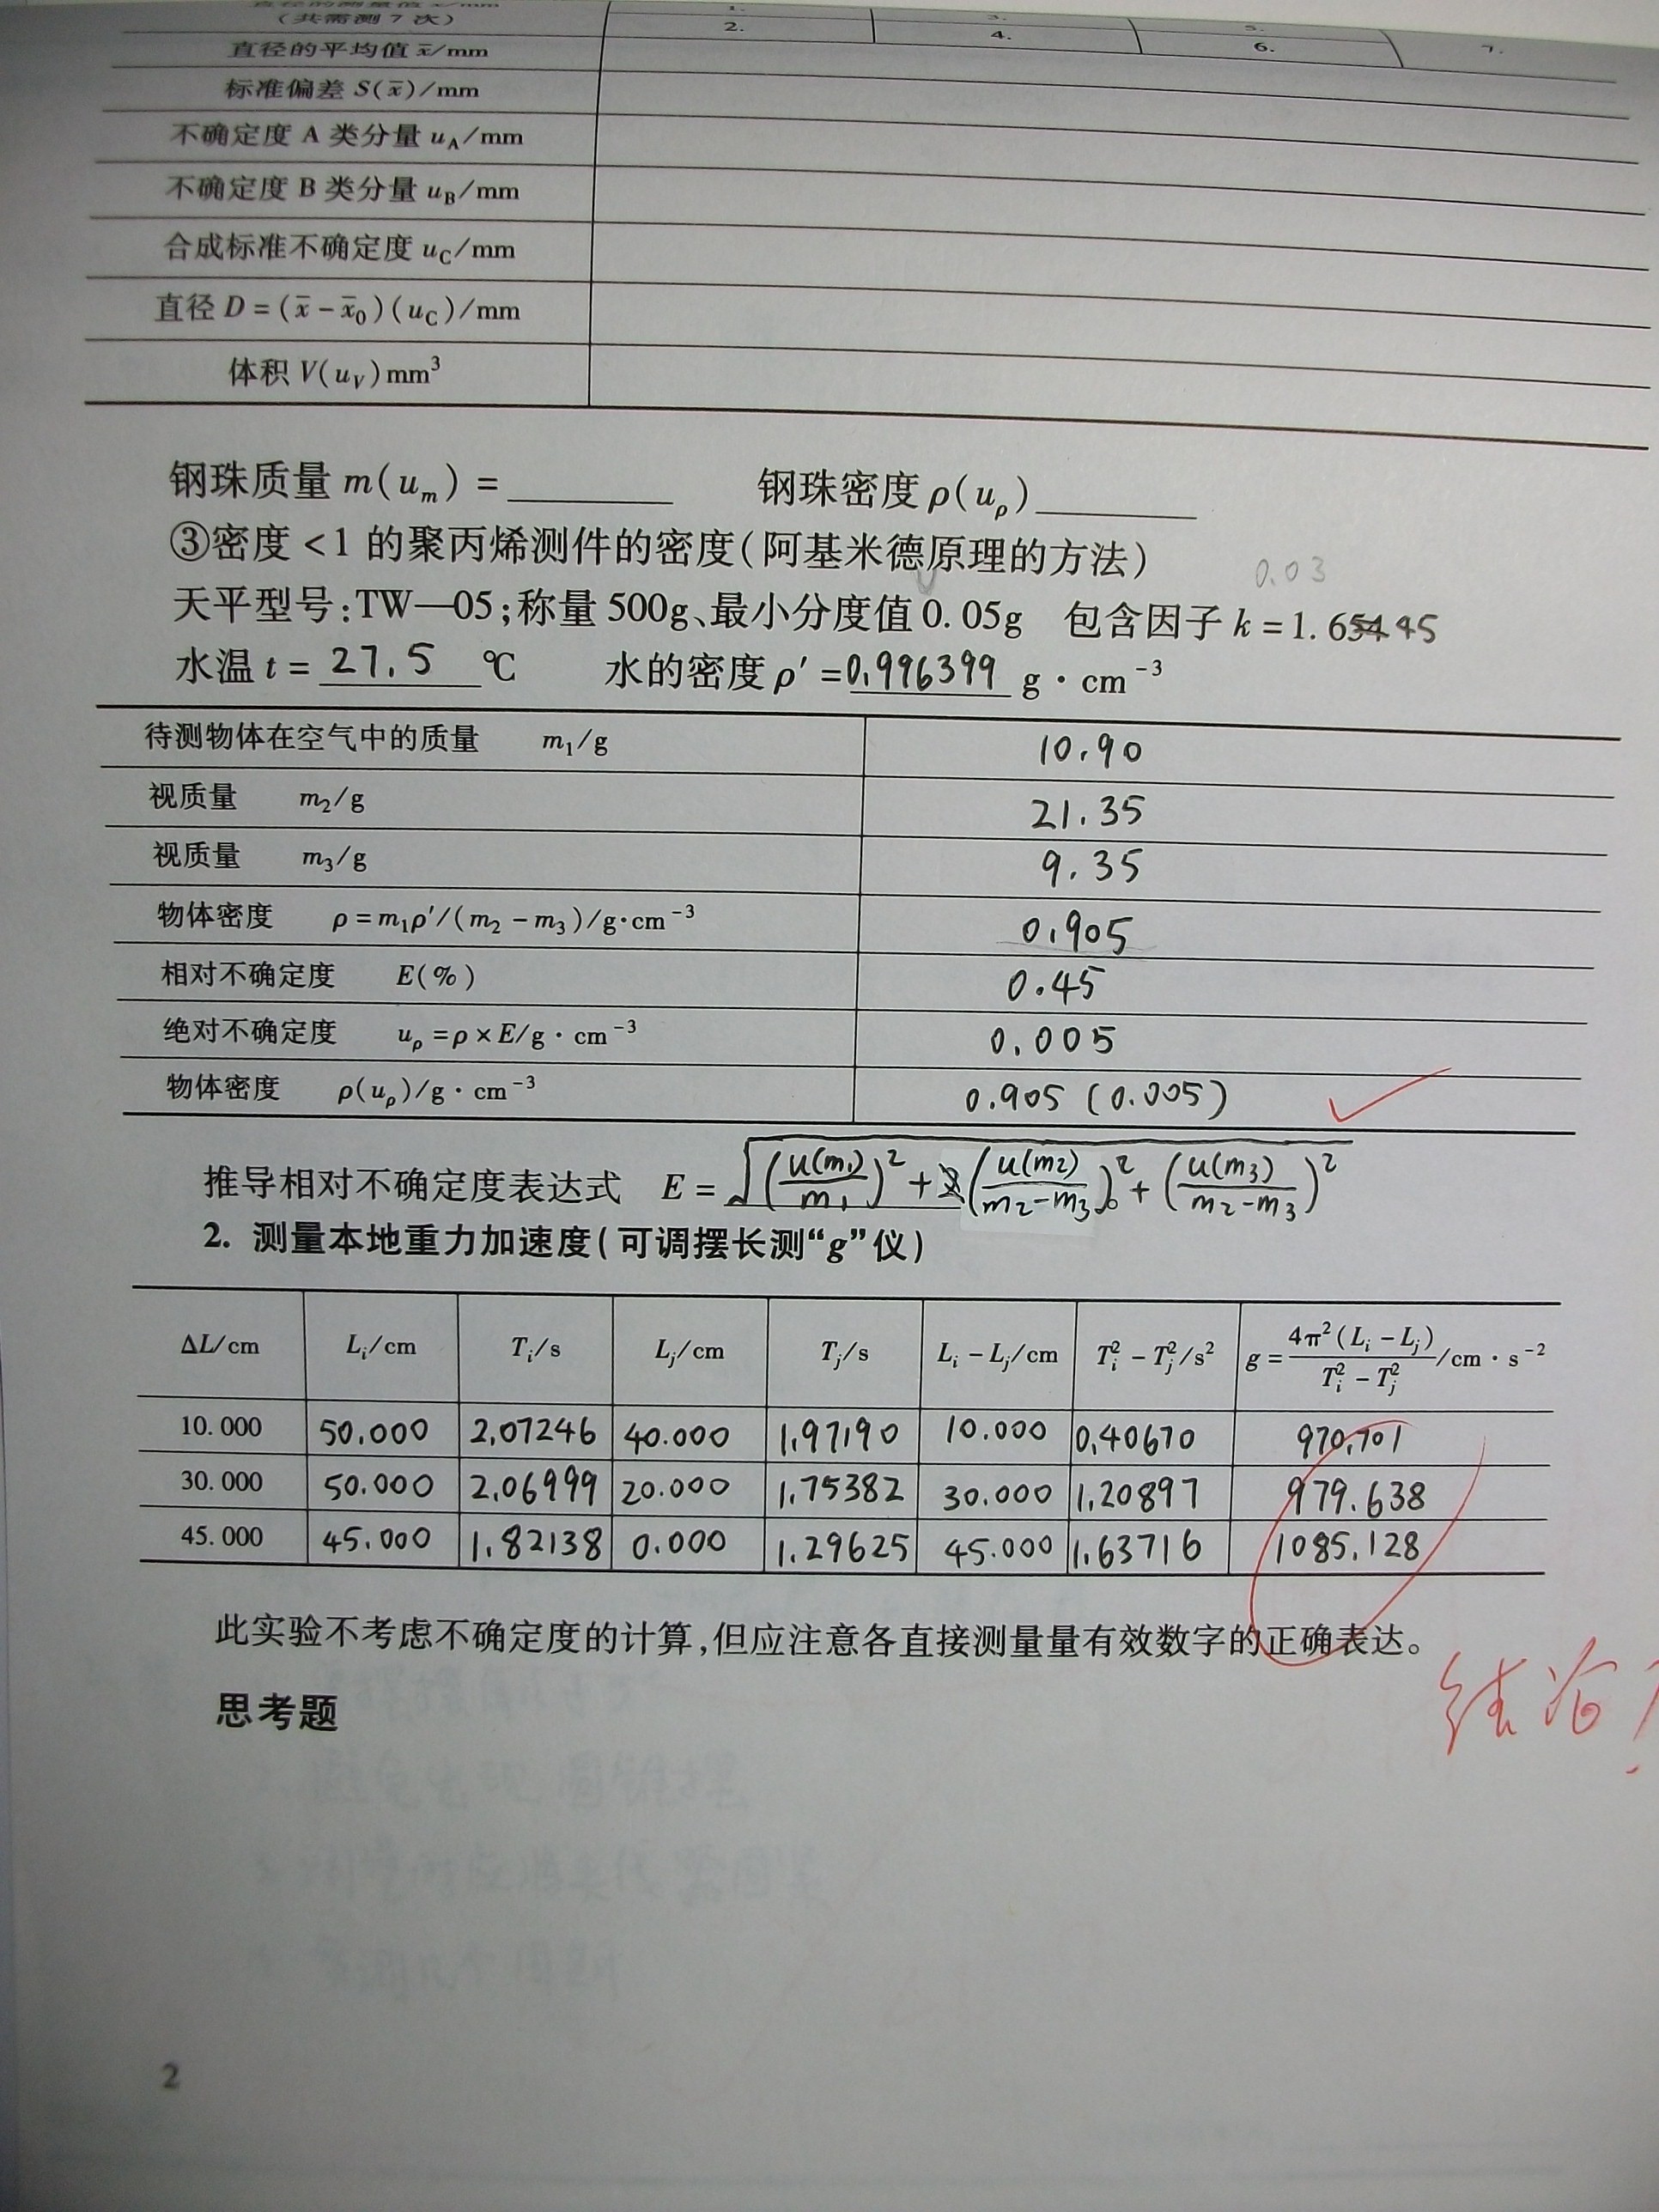 (共需测7次)
1.
2. 4. 6. 7.
直径的平均值 x̄/mm
标准偏差 S(x̄)/mm
不确定度 A 类分量 u_A/mm
不确定度 B 类分量 u_B/mm
合成标准不确定度 u_C/mm
直径 D = (x̄ - x̄₀)(u_C)/mm
体积 V(u_V)mm³
钢珠质量 m(u_m) = ______ 钢珠密度 ρ(u_ρ)______
③密度<1 的聚丙烯测件的密度(阿基米德原理的方法)
0.03
天平型号:TW—05;称量 500g、最小分度值 0.05g 包含因子 k = 1.645
水温 t = 27.5 ℃ 水的密度 ρ′ = 0.996399 g · cm⁻³
待测物体在空气中的质量 m₁/g 10.90
视质量 m₂/g 21.35
视质量 m₃/g 9.35
物体密度 ρ = m₁ρ′/(m₂ - m₃)/g·cm⁻³ 0.905
相对不确定度 E(%) 0.45
绝对不确定度 u_ρ = ρ × E/g · cm⁻³ 0.005
物体密度 ρ(u_ρ)/g · cm⁻³ 0.905 (0.005)
推导相对不确定度表达式 E = √((u(m₁)/m₁)² + (u(m₂)/(m₂-m₃))² + (u(m₃)/(m₂-m₃))²)
2. 测量本地重力加速度(可调摆长测“g”仪)
ΔL/cm L_i/cm T_i/s L_j/cm T_j/s L_i - L_j/cm T_i² - T_j²/s² g = 4π²(L_i - L_j)/(T_i² - T_j²)/cm · s⁻²
10.000 50.000 2.07246 40.000 1.97190 10.000 0.40670 970.701
30.000 50.000 2.06999 20.000 1.75382 30.000 1.20897 979.638
45.000 45.000 1.82138 0.000 1.29625 45.000 1.63716 1085.128
此实验不考虑不确定度的计算,但应注意各直接测量量有效数字的正确表达。
结论?
思考题
2